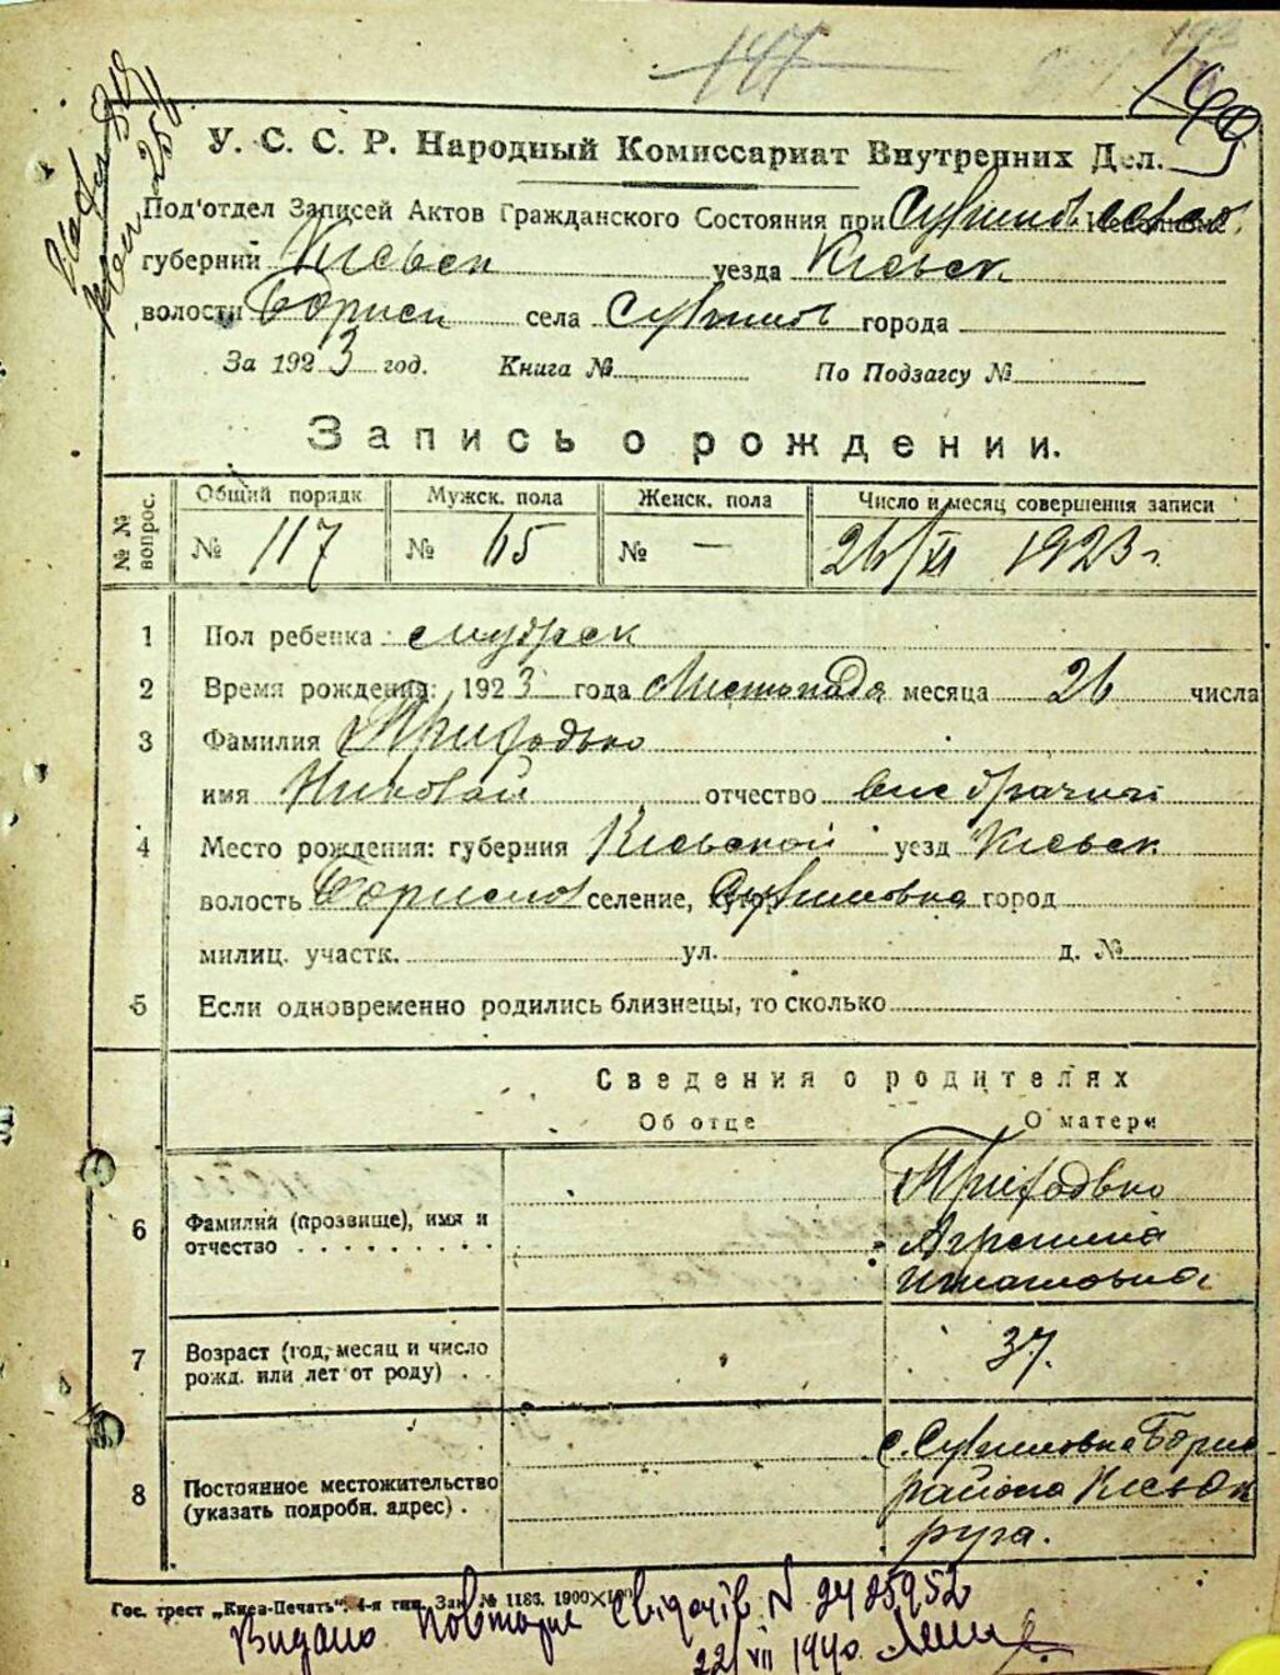 147
У. С. С. Р. Народный Комиссариат Внутренних Дел.
Под'отдел Записей Актов Гражданского Состояния при
губерний Киевск уезда Киевск
волости Борисп села города
За 1923 год. Книга № По Подзагсу №
Запись о рождении.
№№ вопрос. Общий порядк Мужск. пола Женск. пола Число и месяц совершения записи
№ 117 № 65 № — 26/XI 1923 г.
1 Пол ребенка
2 Время рождения: 1923 года Листопада месяца 26 числа
3 Фамилия Приходько
имя Николай отчество вне брачный
4 Место рождения: губерния Киевской уезд Киевск
волость селение, город
милиц. участк. ул. д. №
5 Если одновременно родились близнецы, то сколько
Сведения о родителях
Об отце О матери
Приходько
6 Фамилия (прозвище), имя и
отчество Агрепина
Игнатовна
7 Возраст (год, месяц и число
рожд. или лет от роду) 37.
8 Постоянное местожительство
(указать подробн. адрес)
района
руга.
Гос. трест „Киев-Печать“. 4-я тип. Зак. № 1186. 1900×100
Видано повторне свідоцтв N 2425952
22/VII 1940